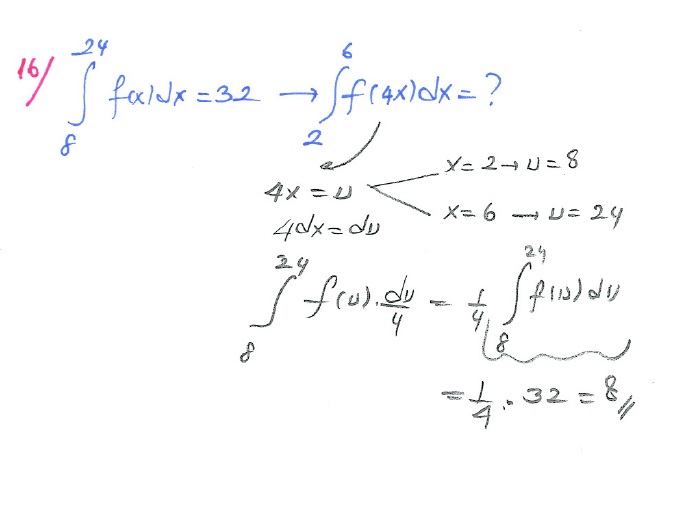 16/ ∫₈²⁴ f(x)dx = 32 → ∫₂⁶ f(4x)dx = ?
4x = u
x = 2 → u = 8
x = 6 → u = 24
4dx = du
∫₈²⁴ f(u) . du/4 = 1/4 ∫₈²⁴ f(u) du
= 1/4 . 32 = 8//